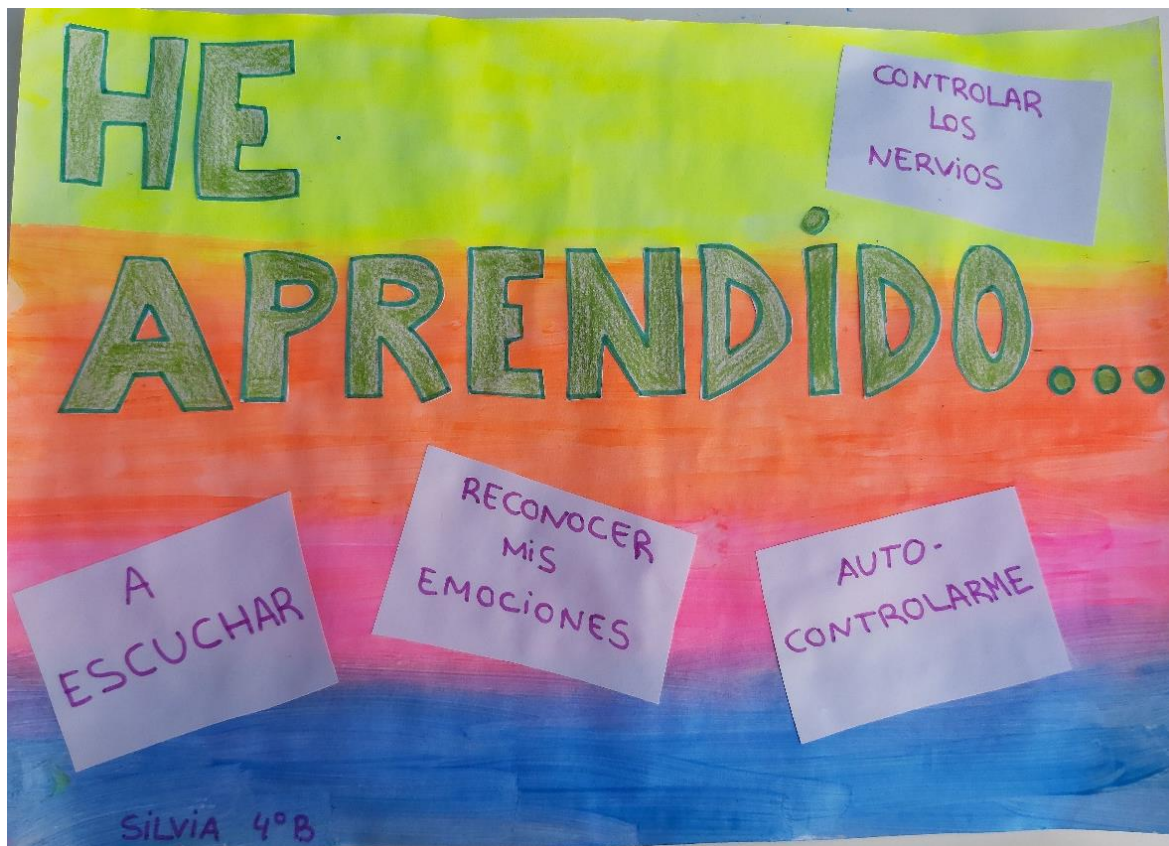 HE
CONTROLAR
LOS
NERViOS
APRENDiDO...
A
ESCUCHAR
RECONOCER
MiS
EMOCiONES
AUTO-
CONTROLARME
SiLViA 4ºB